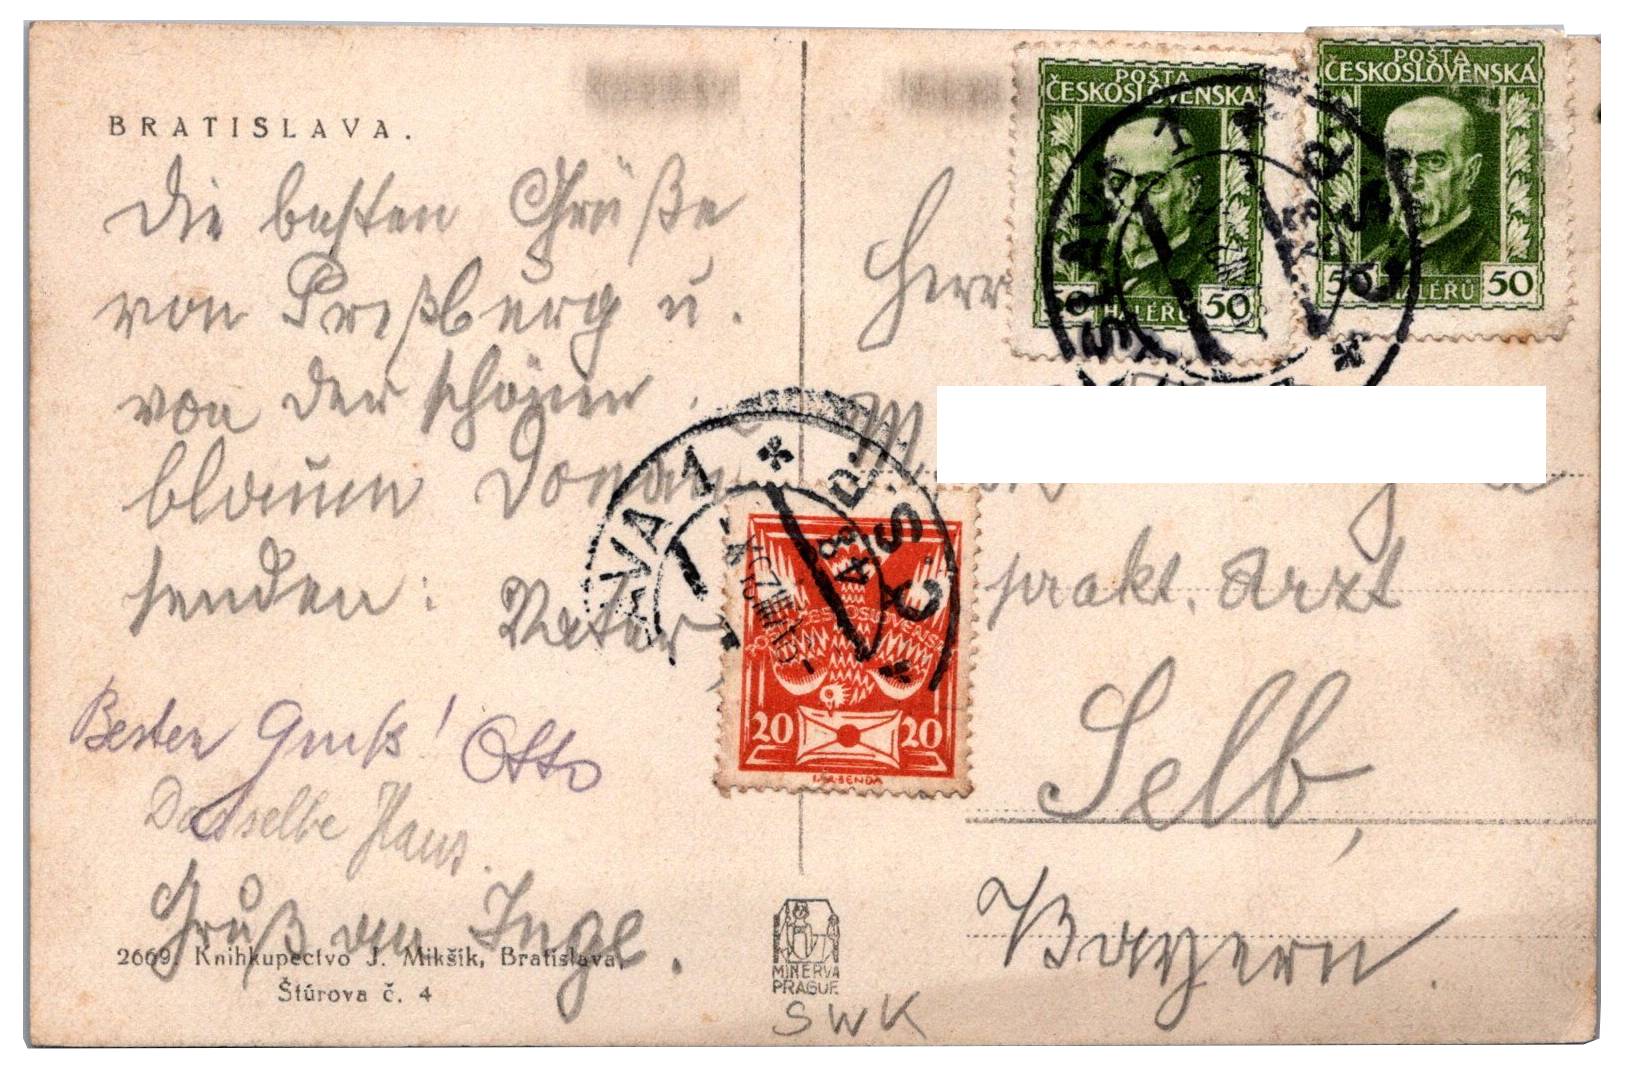 BRATISLAVA.
Die besten Grüße
von Preßburg u.
von der schönen
blauen Donau
senden:
Besten Gruß! Otto
Dasselbe Hans.
Gruß von Inge.
2669. Knihkupectvo J. Mikšík, Bratislava,
Štúrova č. 4
POŠTA
ČESKOSLOVENSKÁ
50 HALÉŘŮ 50
POŠTA
ČESKOSLOVENSKÁ
50 HALÉŘŮ 50
Herrn
prakt. Arzt
Selb,
Bayern.
AVA 1 Č.S.D.
20 20
MINERVA
PRAGUE
SWK